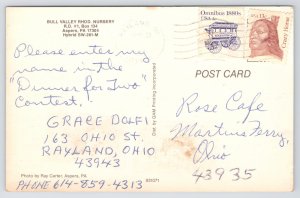 BULL VALLEY RHOD. NURSERY
R.D. #1, Box 134
Aspers, PA 17304
Hybrid SW-261-M
Please enter my
name in the
"Dinner for Two"
Contest.
GRACE DOLFI
163 OHIO ST.
RAYLAND, OHIO
43943
Photo by Ray Carter, Aspers, PA.
PHONE 614-859-4313
835071
Omnibus 1880s
USA 1c
USA 13c
Crazy Horse
POST CARD
Rose Cafe
Martins Ferry,
Ohio
43935